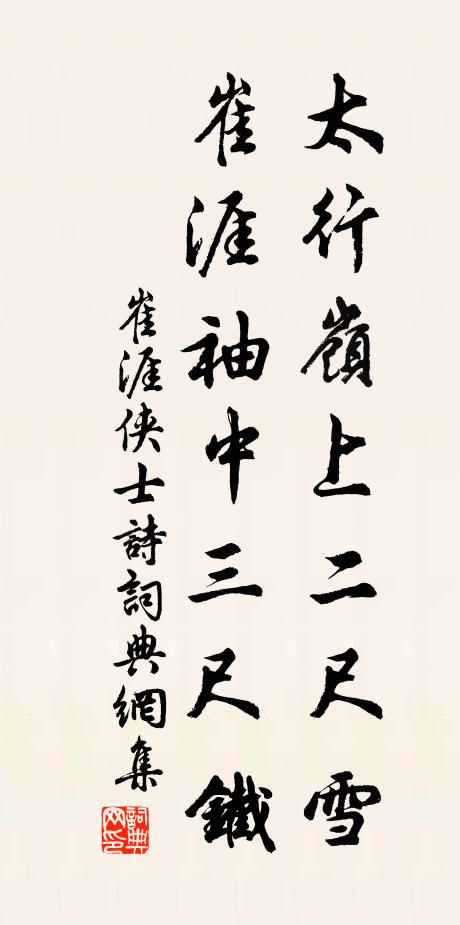 太行嶺上二尺雪
崔涯袖中三尺鐵
崔涯俠士詩詞典網集
詞典網印